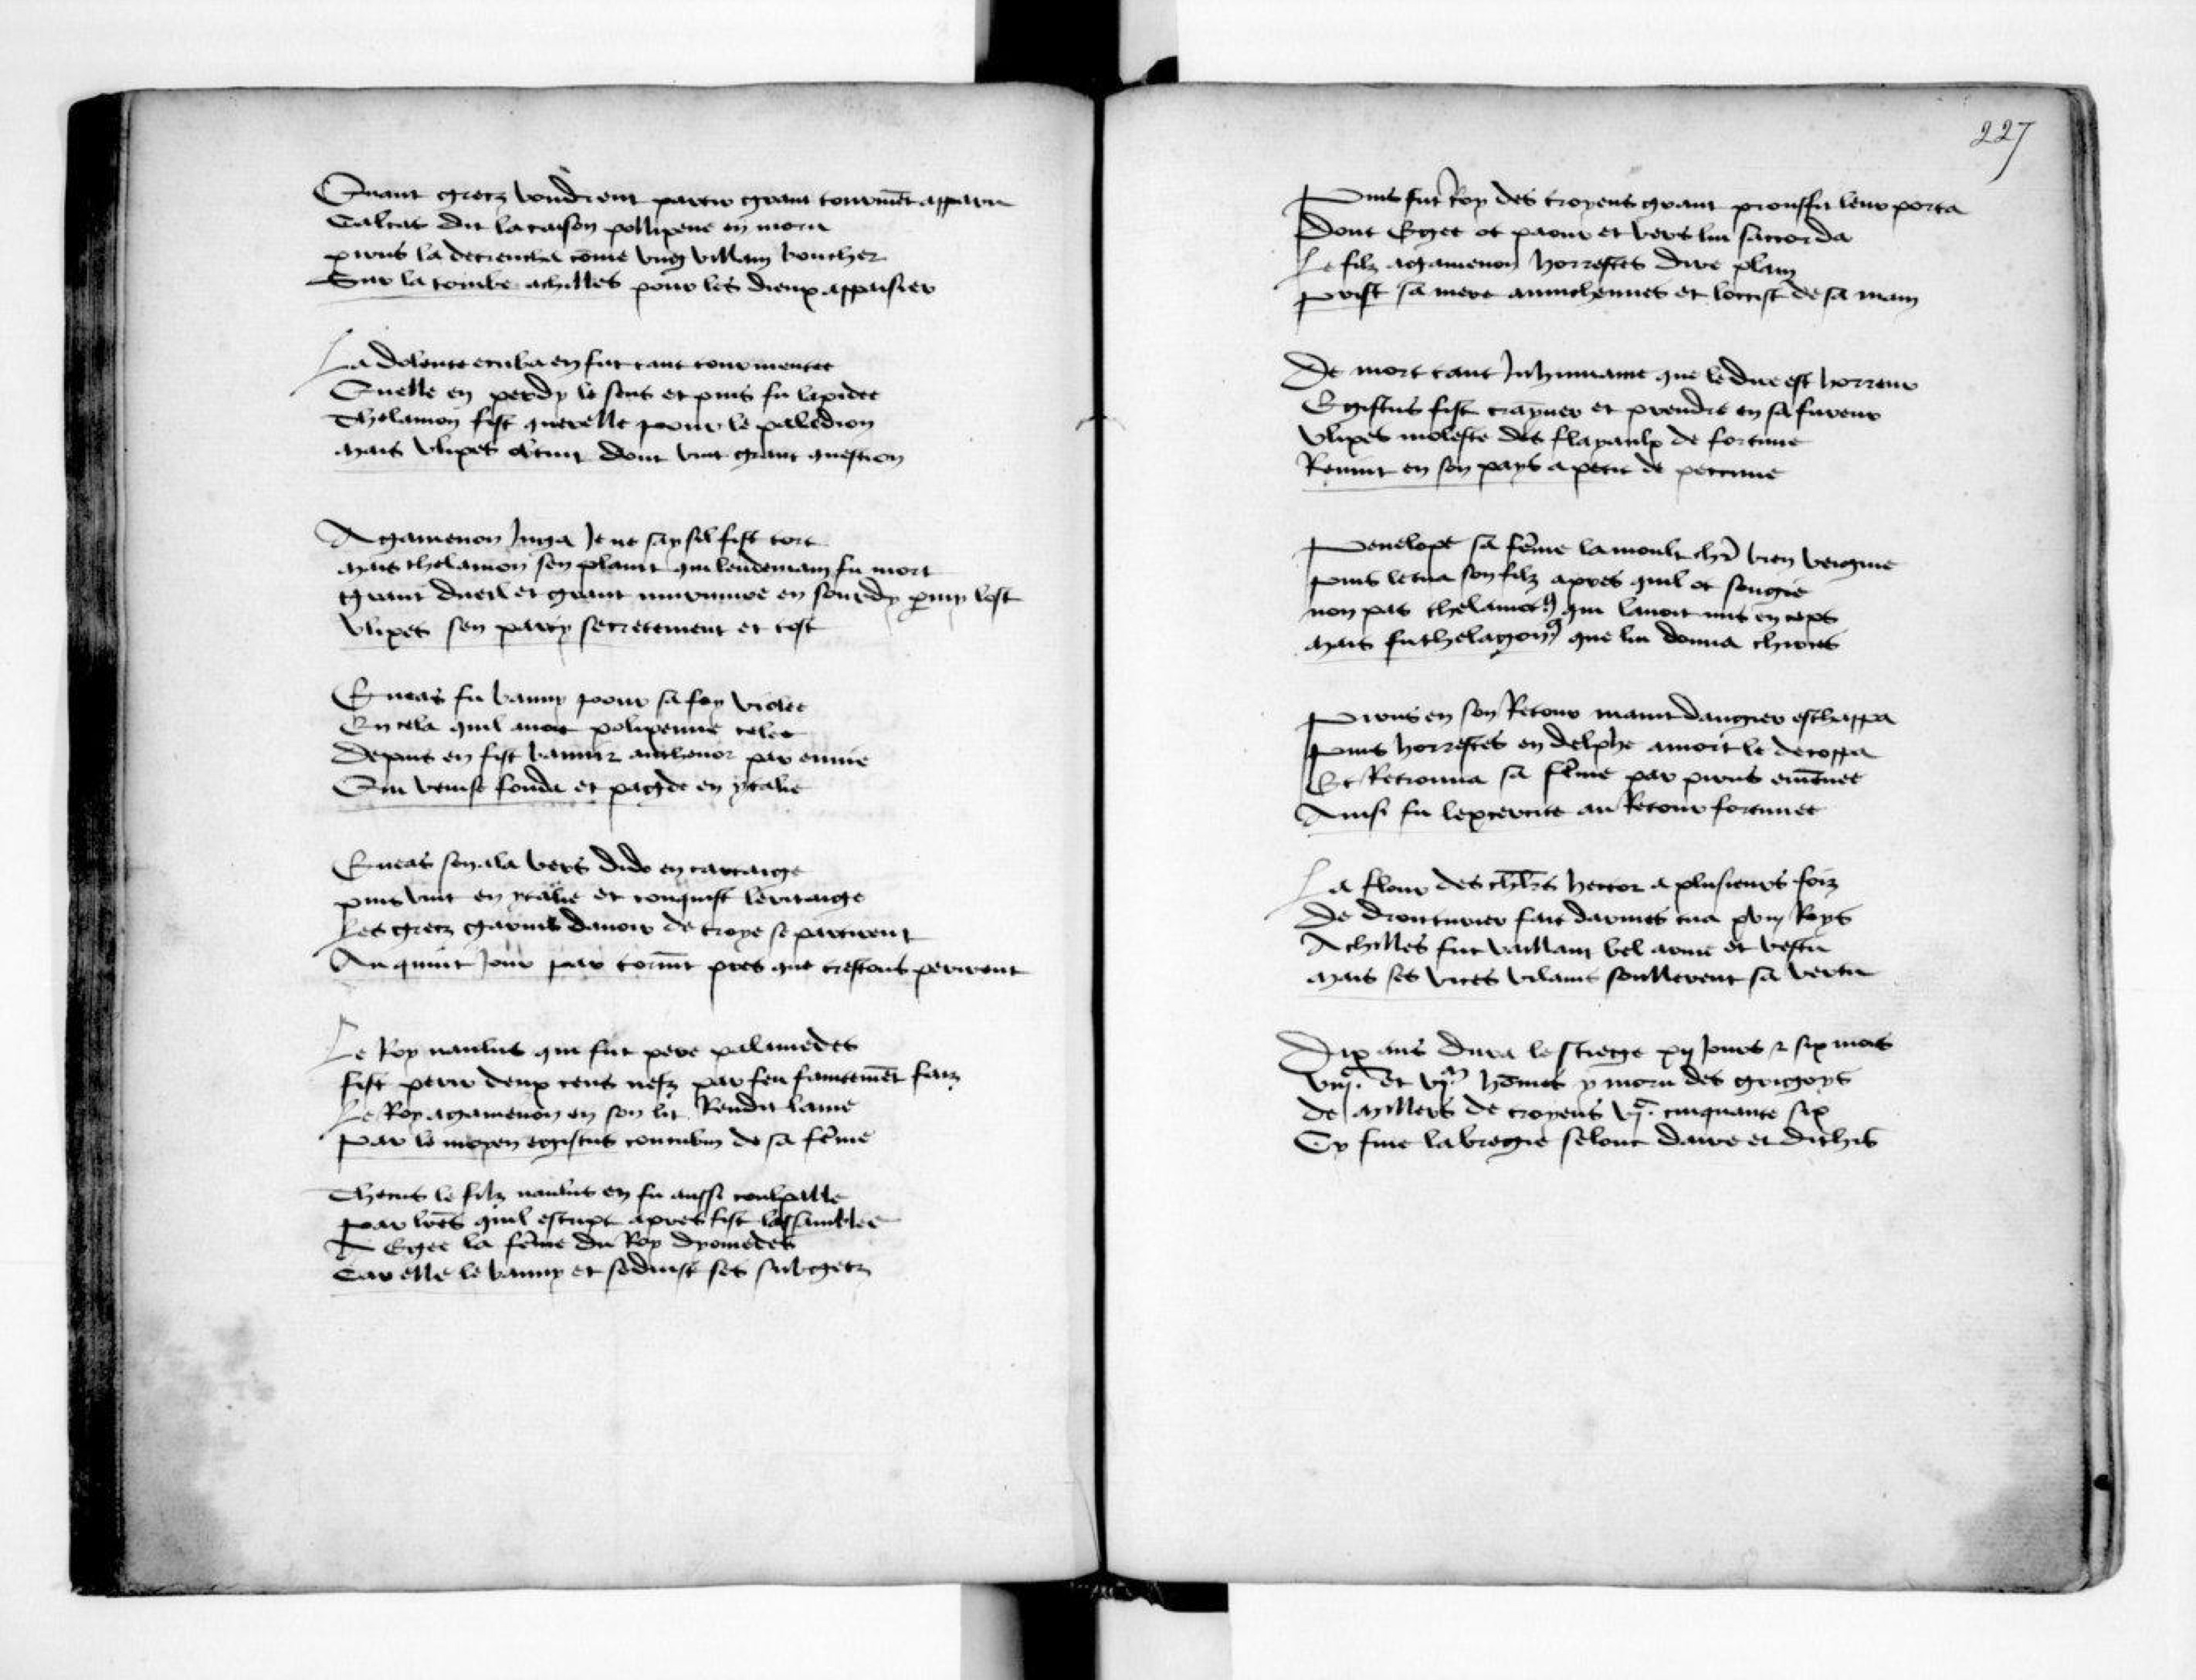 Quant grecz voudrent partir grant tourmēt apparu
Calcas dit la raison pollixene en moru
pirus la detrencha cōme vng villain boucher
Sur la tombe achilles pour les dieux appaisier
La dolente ecuba en fut tant tourmentee
Quelle en perdy le sens et puis fu lapidee
Thelamon fist querelle pour le paledion
mais vlixes obtint dont vint grant question
Agamenon Juga Je ne say sil fist tort
mais thelamon sen plaint qui lendemain fu mort
grant dueil et grant murmure en sourdy ꝑmy lost
vlixes sen party secretement et tost
Eneas fu banny pour sa foy violee
En cela quil auoit polixenne celee
Depuis en fist bannir anthenor par enuie
Qui venise fonda et padde en ytalie
Eneas sen ala vers dido en cartaige
puis vint en ytalie et conquist leritaige
Les grecz garnis dauoir de troye se partirent
Au quint Jour par tormt pres que trestous perirent
Le Roy naulus qui fut pere palamedes
fist perir deux cens nefz par feu faintemēt faiz
Le Roy agamenon en son lit Rendit lame
Par le moyen egistus concubin de sa fēme
Thetus le filz naulus en fu aussi coulpable
Par lrēs quil escript apres fist lassamblee
A Egee la fēme du Roy dyomedes
Car elle le banny et seduist ses subgetz
227
Puis fut Roy des troyens grant prouffit leur porta
Dont Egee ot paour et vers lui saccorda
Le filz agamenon horrestes dire plain
prist sa mere aumchennes et loccist de sa main
De mort tant Inhumaine que le dire est horreur
Egistus fist trayner et prendre en sa fureur
vlixes moleste des flayaulx de fortune
Reuint en son pays a petit de pecune
Penelope sa fēme lamoult chr̄ bien veignie
puis le tua son filz apres quil ot songie
non pas thelamocus qui lauoit mis en ceps
mais fu thelagonus que lui donna chirces
Pirus en son Retour maint dangier eschappa
puis horrestes en delphe a mort le decoppa
Et Retrouua sa fēme par pirus emēnee
Ainsi fu lexcercite au Retour fortunee
La flour des chlrs hector a plusieurs foiz
De droiturier fait darmes tua xviij Roys
Achilles fut vaillant bel arme et vestu
mais ses vices vilains soullerent sa vertu
Dix ans dura le sciege xij Jours et six mois
viijc et vjm hōmes y moru des grigoys
de millers de troyens vjc cinquante six
Cy fine labregie selont daire et dithis